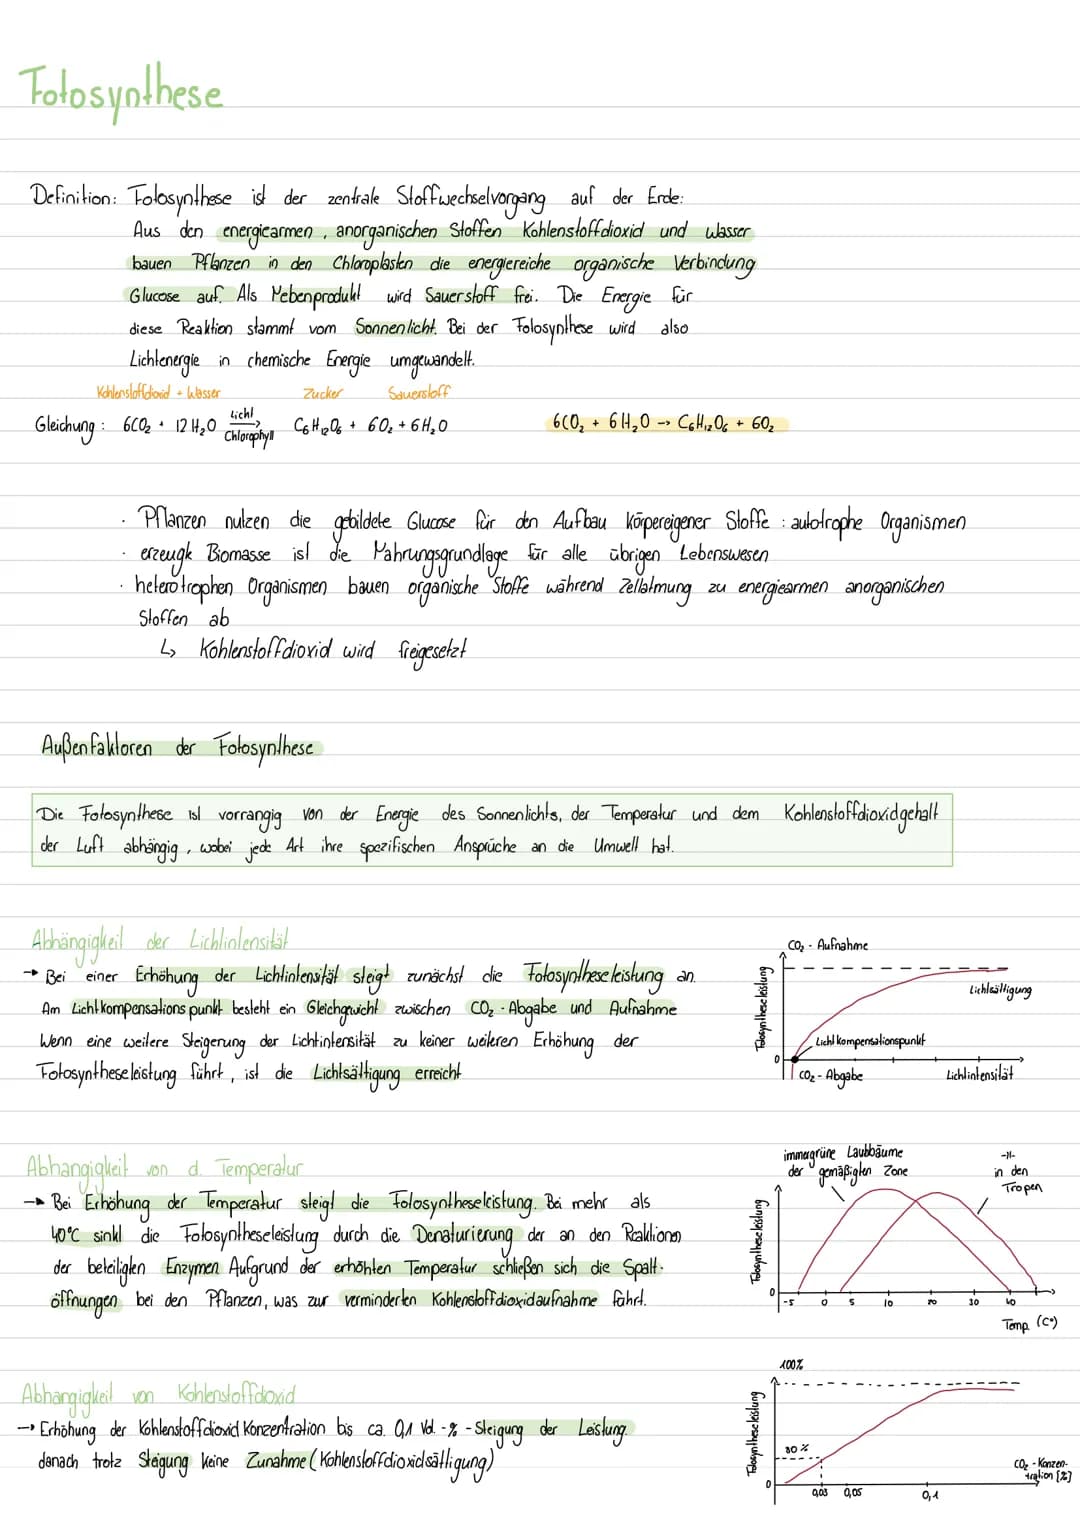 Fotosynthese
Definition: Fotosynthese ist der zentrale Stoffwechselvorgang auf der Erde:
Aus den energiearmen, anorganischen Stoffen Kohlenstoffdioxid und Wasser
bauen Pflanzen in den Chloroplasten die energiereiche organische Verbindung
Glucose auf. Als Nebenprodukt wird Sauerstoff frei. Die Energie für
diese Reaktion stammt vom Sonnenlicht. Bei der Fotosynthese wird also
Lichtenergie in chemische Energie umgewandelt.
Kohlenstoffdioxid + Wasser Zucker Sauerstoff
Gleichung: 6CO₂ + 12 H₂O Licht → Chlorophyll C₆H₁₂O₆ + 6O₂ + 6H₂O 6CO₂ + 6H₂O -> C₆H₁₂O₆ + 6O₂
· Pflanzen nutzen die gebildete Glucose für den Aufbau körpereigener Stoffe : autotrophe Organismen
· erzeugte Biomasse ist die Nahrungsgrundlage für alle übrigen Lebenswesen
· heterotrophen Organismen bauen organische Stoffe während Zellatmung zu energiearmen anorganischen
Stoffen ab
↳ Kohlenstoffdioxid wird freigesetzt
Außenfaktoren der Fotosynthese
Die Fotosynthese ist vorrangig von der Energie des Sonnenlichts, der Temperatur und dem Kohlenstoffdioxidgehalt
der Luft abhängig, wobei jede Art ihre spezifischen Ansprüche an die Umwelt hat.
Abhängigkeit der Lichtintensität
→ Bei einer Erhöhung der Lichtintensität steigt zunächst die Fotosyntheseleistung an.
Am Lichtkompensationspunkt besteht ein Gleichgewicht zwischen CO₂-Abgabe und Aufnahme
Wenn eine weitere Steigerung der Lichtintensität zu keiner weiteren Erhöhung der
Fotosyntheseleistung führt, ist die Lichtsättigung erreicht
CO₂ - Aufnahme
Fotosyntheseleistung
Lichtsättigung
Lichtkompensationspunkt
0
CO₂ - Abgabe
Lichtintensität
Abhängigkeit von d. Temperatur
→ Bei Erhöhung der Temperatur steigt die Fotosyntheseleistung. Bei mehr als
40°C sinkt die Fotosyntheseleistung durch die Denaturierung der an den Reaktionen
der beteiligten Enzymen Aufgrund der erhöhten Temperatur schließen sich die Spalt-
öffnungen bei den Pflanzen, was zur verminderten Kohlenstoffdioxidaufnahme führt.
immergrüne Laubbäume
der gemäßigten Zone
-"-
in den
Tropen
Fotosyntheseleistung
0
-5 0 5 10 20 30 40
Temp. (C°)
Abhängigkeit von Kohlenstoffdioxid
→ Erhöhung der Kohlenstoffdioxid Konzentration bis ca. 0,1 Vol.-% - Steigung der Leistung.
danach trotz Steigung keine Zunahme (Kohlenstoffdioxidsättigung)
100%
Fotosyntheseleistung
30 %
0
0,03 0,05 0,1
CO₂ - Konzen-
tration [%]